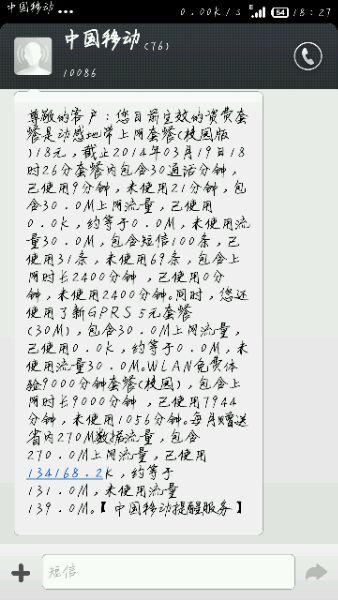 中国移动... 0.00K/s 54 18:27
中国移动(76)
10086
尊敬的客户：您目前生效的资费套
餐是动感地带上网套餐(校园版
)18元，截止2014年03月19日18
时26分套餐内包含30通话分钟，
已使用9分钟，未使用21分钟，包
含30.0M上网流量，已使用
0.0K，约等于0.0M，未使用流
量30.0M，包含短信100条，已
使用31条，未使用69条，包含上
网时长2400分钟，已使用0分
钟，未使用2400分钟。同时，您还
使用了新GPRS 5元套餐
(30M)，包含30.0M上网流量，
已使用0.0K，约等于0.0M，未
使用流量30.0M。WLAN免费体
验9000分钟套餐(校园)，包含上
网时长9000分钟，已使用7944
分钟，未使用1056分钟。每月赠送
省内270M数据流量，包含
270.0M上网流量，已使用
134168.2K，约等于
131.0M，未使用流量
139.0M。【中国移动提醒服务】
短信